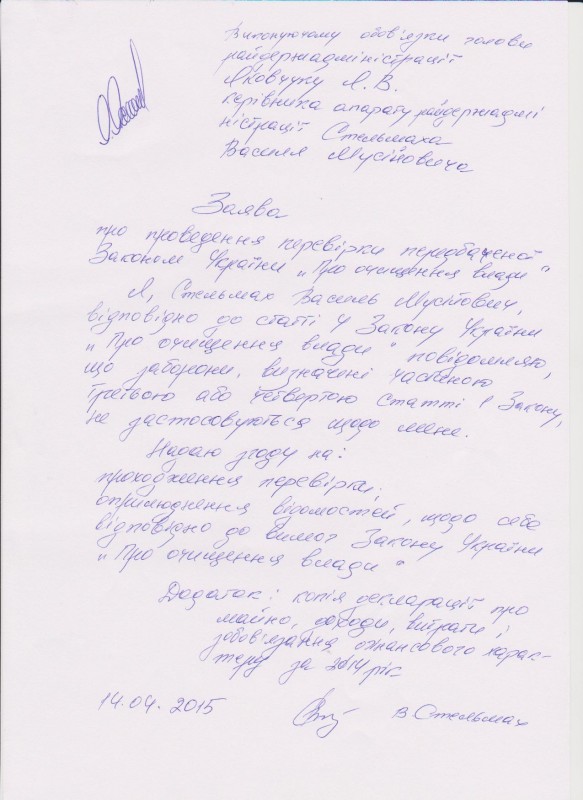 Виконуючому обов'язки голови
райдержадміністрації
Яковчуку Я. В.
керівника апарату райдержадмі
ністрації Стельмаха
Василя Мусійовича
Заява
про проведення перевірки передбаченої
Законом України „Про очищення влади"
Я, Стельмах Василь Мусійович,
відповідно до статті 4 Закону України
„Про очищення влади" повідомляю,
що заборони, визначені частиною
третьою або четвертою статті 1 Закону,
не застосовуються щодо мене.
Надаю згоду на:
проходження перевірки;
оприлюднення відомостей, щодо себе
відповідно до вимог Закону України
„Про очищення влади"
Додаток: копія декларації про
майно, доходи, витрати і
зобов'язання фінансового харак-
теру за 2014 рік
14.04.2015 В. Стельмах